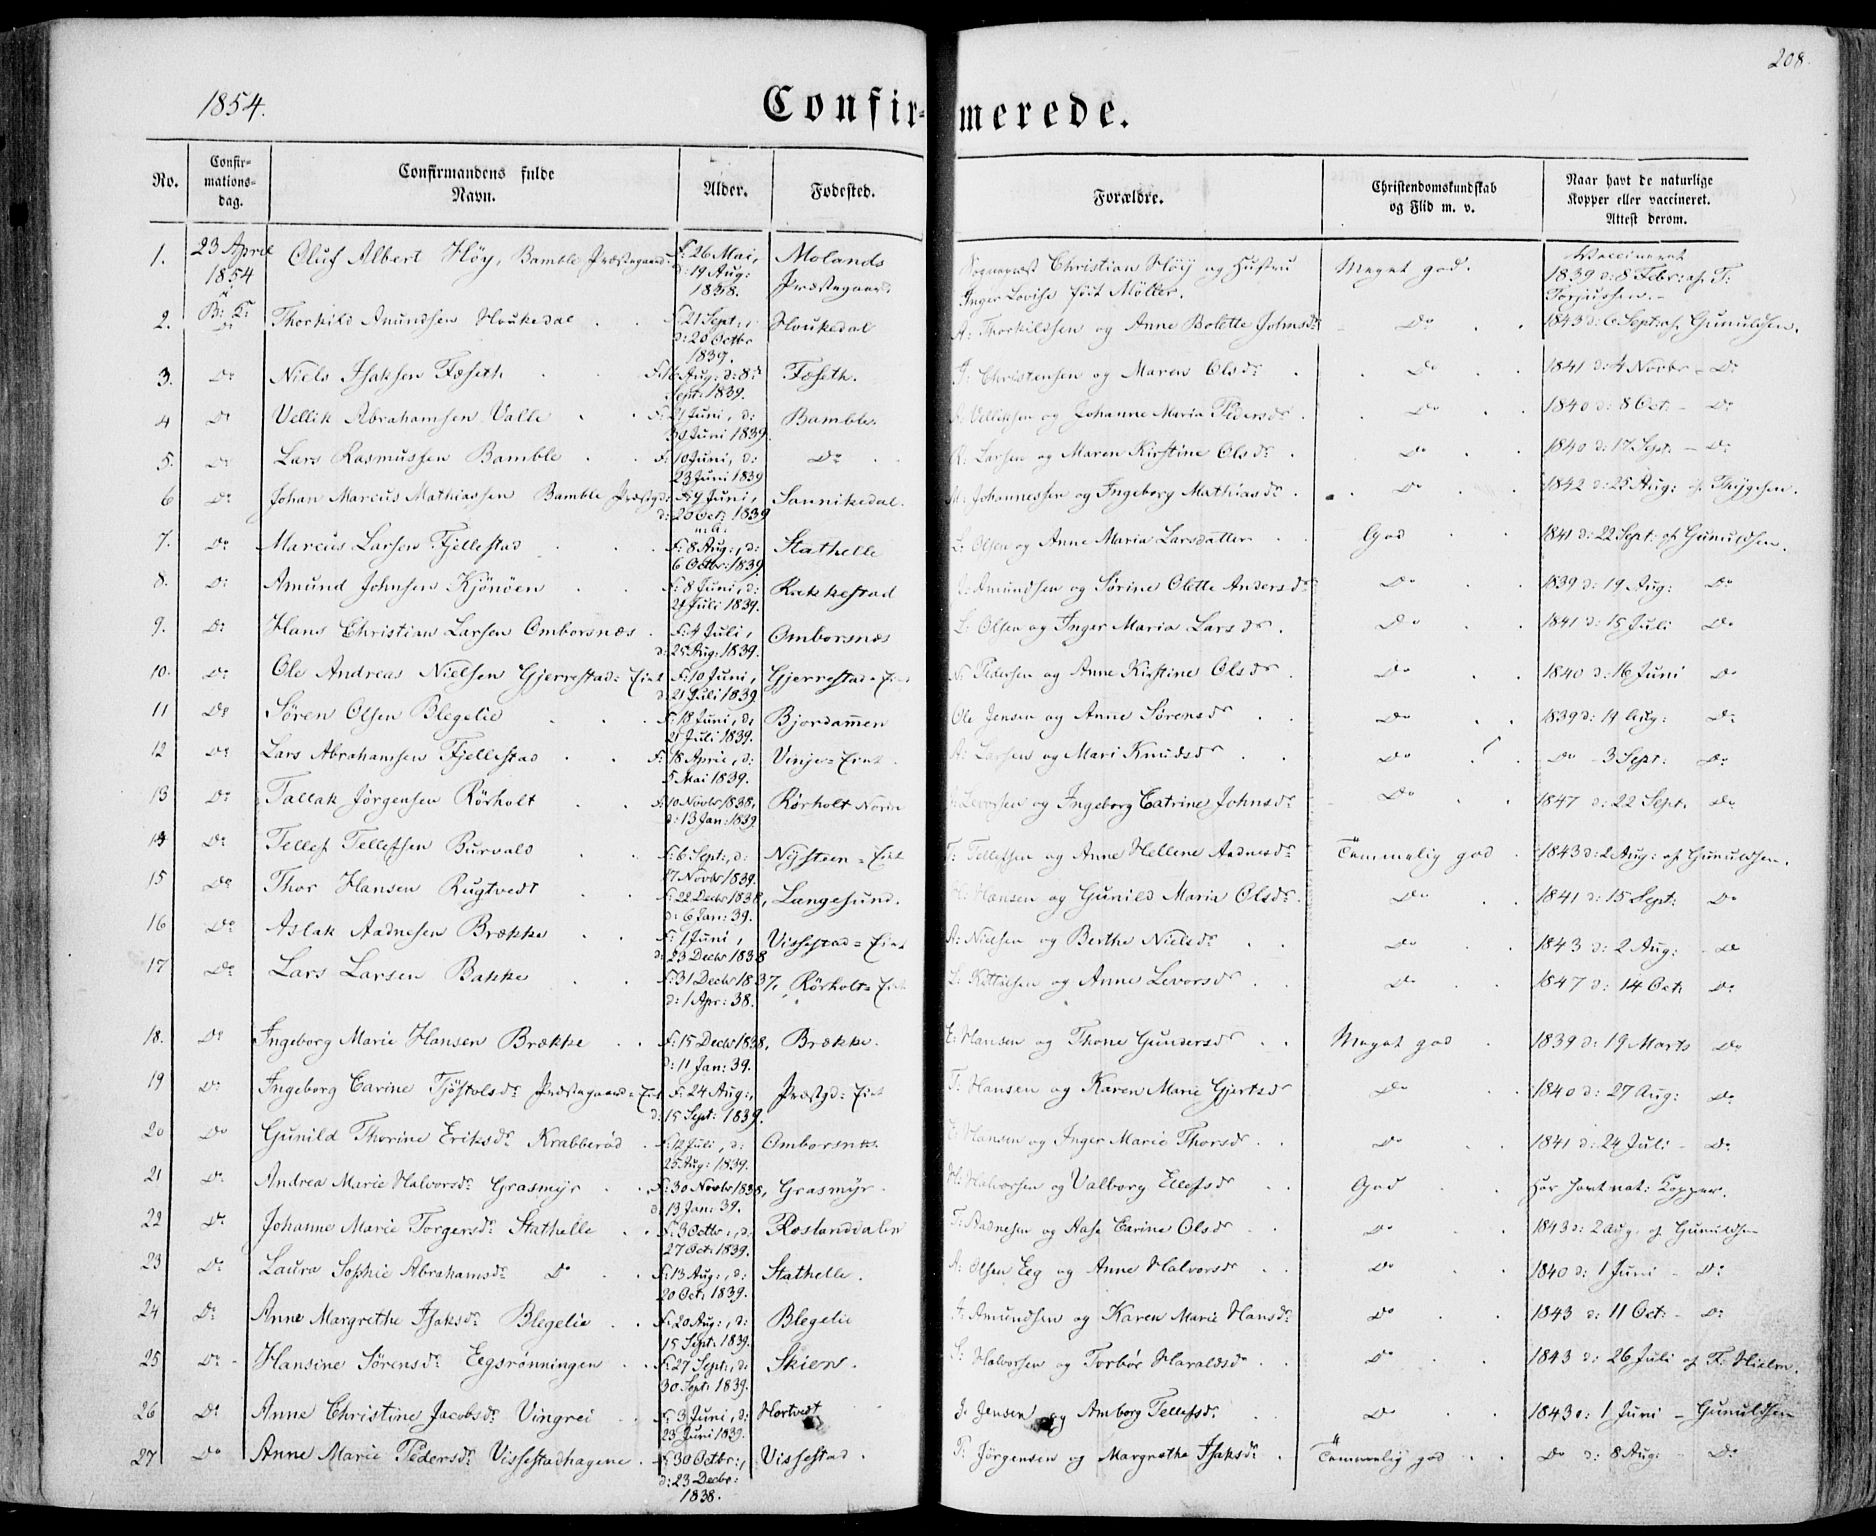 208.
1854.
Confirmerede.
No.
Confirmations-dag.
Confirmandens fulde Navn.
Alder.
Fødested.
Forældre.
Christendomskundskab og Flid m. v.
Naar havt de naturlige Kopper eller vaccineret. Attest derom.
1. 23 April 1854 Oluf Albert Höy, Bamble Præstegaard. F: 26 Mai, d: 19 Aug: 1838. Molands Præstegaard. Christian Höy og Hustru Inger Lovise föit Möller. Meget god. Vaccineret 1839 d: 8 Febr: af T: Torjussen.
2. Do Thorkild Anundsen Houkedal F: 21 Sept:, d: 20 Octbr 1839. Houkedal A: Thorkildsen og Anne Bolette Johnsdr Do 1843 d: 6 Sept: af Gunuldsen.
3. Do Niels Isaksen Fæseth F: 16 Aug: d: 8d Sept: 1839. Fæseth. I: Christensen og Maren Olsdr Do 1841 d: 4 Novbr - Do
4 Do Vellik Abrahamsen Valle F: 21 Juni, d: 30 Juni 1839. Bamble. A: Vellicksen og Johanne Maria Pedersdr Do 1840 d: 8 Oct: - Do
5. Do Lars Rasmussen Bamble F: 10 Juni, d: 23 Juni 1839 Do R: Larsen og Maren Kirstine Olsdr Do 1840 d: 17 Sept. - Do
6 Do Johan Marcus Mathiassen Bamble Præstgd: F: 4 Juni, d: 20 Oct: 1839 Sannikedal. M: Johannessen og Ingeborg Mathiasdr Do 1842 d: 25 Aug: af Thygesen.
7. Do Marcus Larsen Fjellestad F: 8 Aug:, d: 6 Octbr: 1839 Stathelle L: Olsen og Anne Maria Larsdatter God 1841 d: 22 Sept: af Gunuldsen.
8. Do Amund Johnsen Kjönöen F: 8 Juni, d: 21 Juli 1839. Rakkestad Amundsen og Sörine Olette Andersdr Do 1839 d: 19 Aug: Do
9. Do Hans Christian Larsen Omborsnæs F: 4 Juli, d: 25 Aug: 1839. Omborsnæs L: Olsen og Inger Maria Larsdr. Do 1841 d: 15 Juli Do
10. Do Ole Andreas Nielsen Gjerrestad-Eiet F: 10 Juni, d: 21 Juli 1839 Gjerrestad-Eiet N: Pedersen og Anne Kirstine Olsdr Do 1840 d: 16 Juni Do
11 Do Sören Olsen Blegelie F: 18 Juni, d: 21 Juli 1839. Bjordammen Ole Jensen og Anne Sörensdr Do 1839 d: 19 Aug: Do
12 Do Lars Abrahamsen Fjellestad F: 18 April, d: 5 Mai 1839. Vinje-Eiet. A: Larsen og Mari Knudsdr Do Do 3 Sept: Do
13 Do Tallak Jörgensen Rörholt F: 10 Novbr 1838, d: 13 Jan: 1839 Rörholt Levorsen og Ingeborg Catrine Johnsdr Do 1847 d: 22 Sept. Do
14 Do Tellef Tellefsen Burvald F: 6 Sept:, d: 17 Novbr 1839. Nysteen-Eiet T: Tellefsen og Anne Hellene Aadnesdr Temmelig god 1843 d: 2 Aug: af Gunuldsen.
15 Do Thor Hansen Rugtvedt F: 22 Decbr 1838, d: 6 Jan: 39. Langesund. H: Hansen og Gunild Maria Olsdr Do 1841 d: 15 Sept: Do
16 Do Aslak Aadnesen Brække F: 1 Juni, d: 23 Decbr 1838 Vissestad-Eiet A: Nielsen og Berthe Nielsdr Do 1843 d: 2 Aug: Do
17 Do Lars Larsen Bakke F: 31 Decbr 1837, d: 1 Apr: 38. Rörholt-Eiet L: Kittilsen og Anne Levorsdr Do 1847 d: 14 Oct: Do
18. Do Ingeborg Marie Hansen Brække F: 15 Decbr 1838, d: 11 Jan: 39. Brække. E: Hansen og Thone Gundersdr Meget god 1839 d: 19 Marts Do
19 Do Ingeborg Carine Tjöstolsdr Præstegaard-Eiet F: 24 Aug:, d: 15 Sept: 1839. Præstgd: Eiet T: Hansen og Karen Marie Gjertsdr Do 1840 d: 27 Aug: Do
20 Do Gunild Thorine Eriksdr Krabberöd F: 12 Juli, d: 25 Aug: 1839. Omborsnæs. E: Hansen og Inger Marie Thorsdr Do 1841 d: 24 Juli - Do
21 Do Andrea Marie Halvorsdr Grasmyr F: 30 Novbr 1838, d: 13 Jan: 39. Grasmyr. H: Halvorsen og Valborg Ellefsdr God Har havt nat: Kopper.
22 Do Johanne Marie Torgersdr Stathelle F: 3 Octbr:, d: 27 Oct: 1839. Roslanddalen T: Aadnesen og Aase Carine Olsdr Do 1843 d: 2 Aug. af Gunuldsen
23 Do Laura Sophie Abrahamsdr Do F: 13 Aug:, d: 20 Oct: 1839. Stathelle. A: Olsen Eeg og Anne Halvorsdr Do 1840 d: 1 Juni - Do
24 Do Anne Margrethe Isaksdr Blegelie F: 20 Aug:, d: 15 Sept: 1839. Blegelie I: Amundsen og Karen Marie Hansdr Do 1843 d: 11 Oct: - Do
25 Do Hansine Sörensdr Eegsrönningen F: 27 Sept:, d: 30 Sept: 1839. Skien. S: Halvorsen og Torbör Haraldsdr Do 1843 d: 26 Juli af F: Hielm.
26 Do Anne Christine Jacobsdr Vingrei F: 3 Juni, d: 23 Juni 1839. Hortvedt J: Jensen og Amborg Tellefsdr. Do 1843 d: 1 Juni - Gunuldsen
27 Do Anne Marie Pedersdr Vissestadhagene F: 30 Octbr:, d: 23 Decbr: 1838. Vissestad. P: Jörgensen og Margrethe Isaksdr Temmelig god Do d: 8 Aug: Do